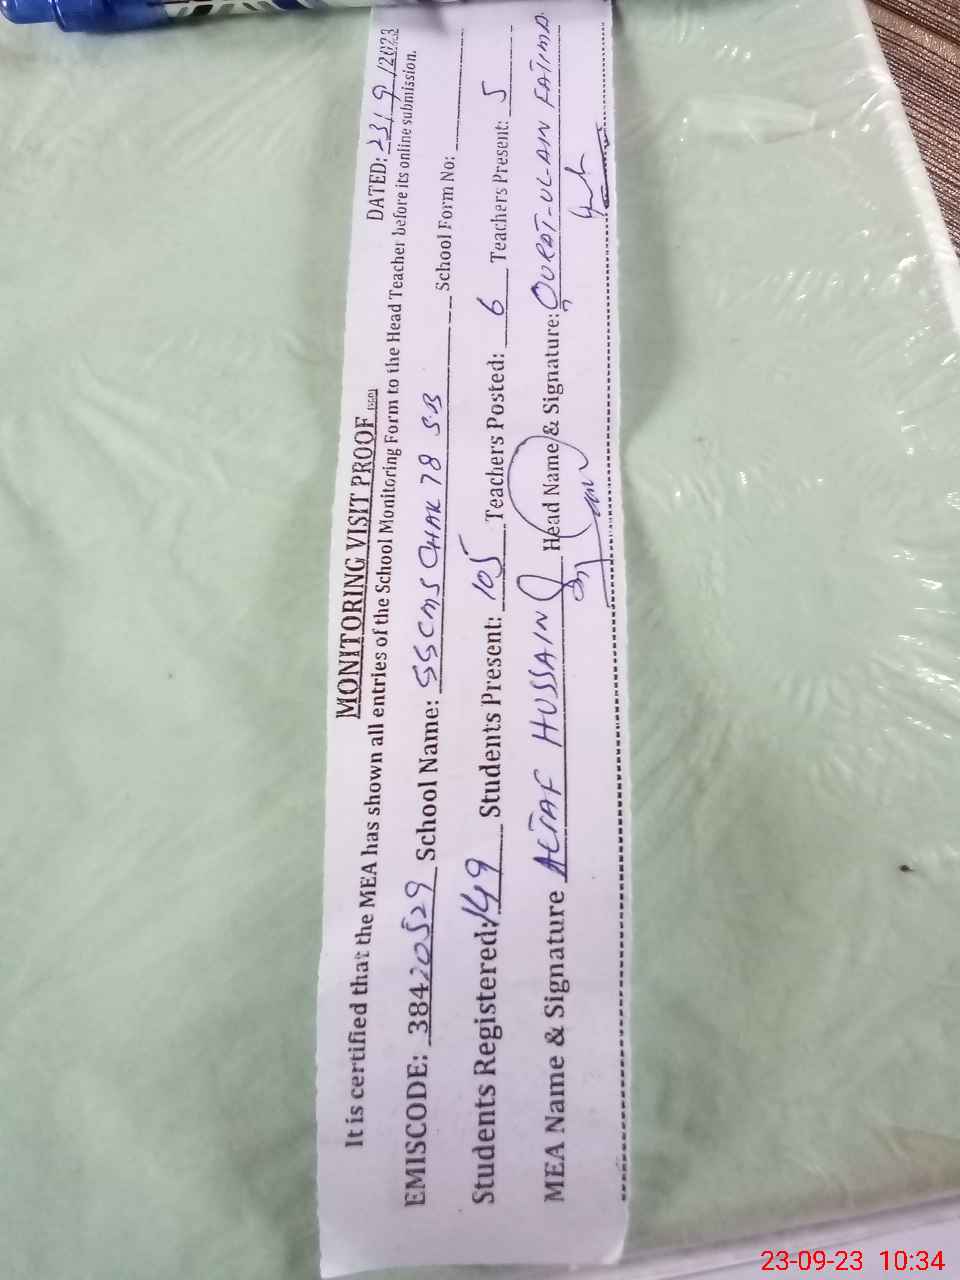 MONITORING VISIT PROOF (SED)
DATED: 23/9/2023
It is certified that the MEA has shown all entries of the School Monitoring Form to the Head Teacher before its online submission.
EMISCODE: 38420529 School Name: SSCMS CHAK 78 SB School Form No:
Students Registered: 149 Students Present: 105 Teachers Posted: 6 Teachers Present: 5
MEA Name & Signature ALTAF HUSSAIN Head Name & Signature: QURAT-UL-AIN FATIMA
23-09-23 10:34